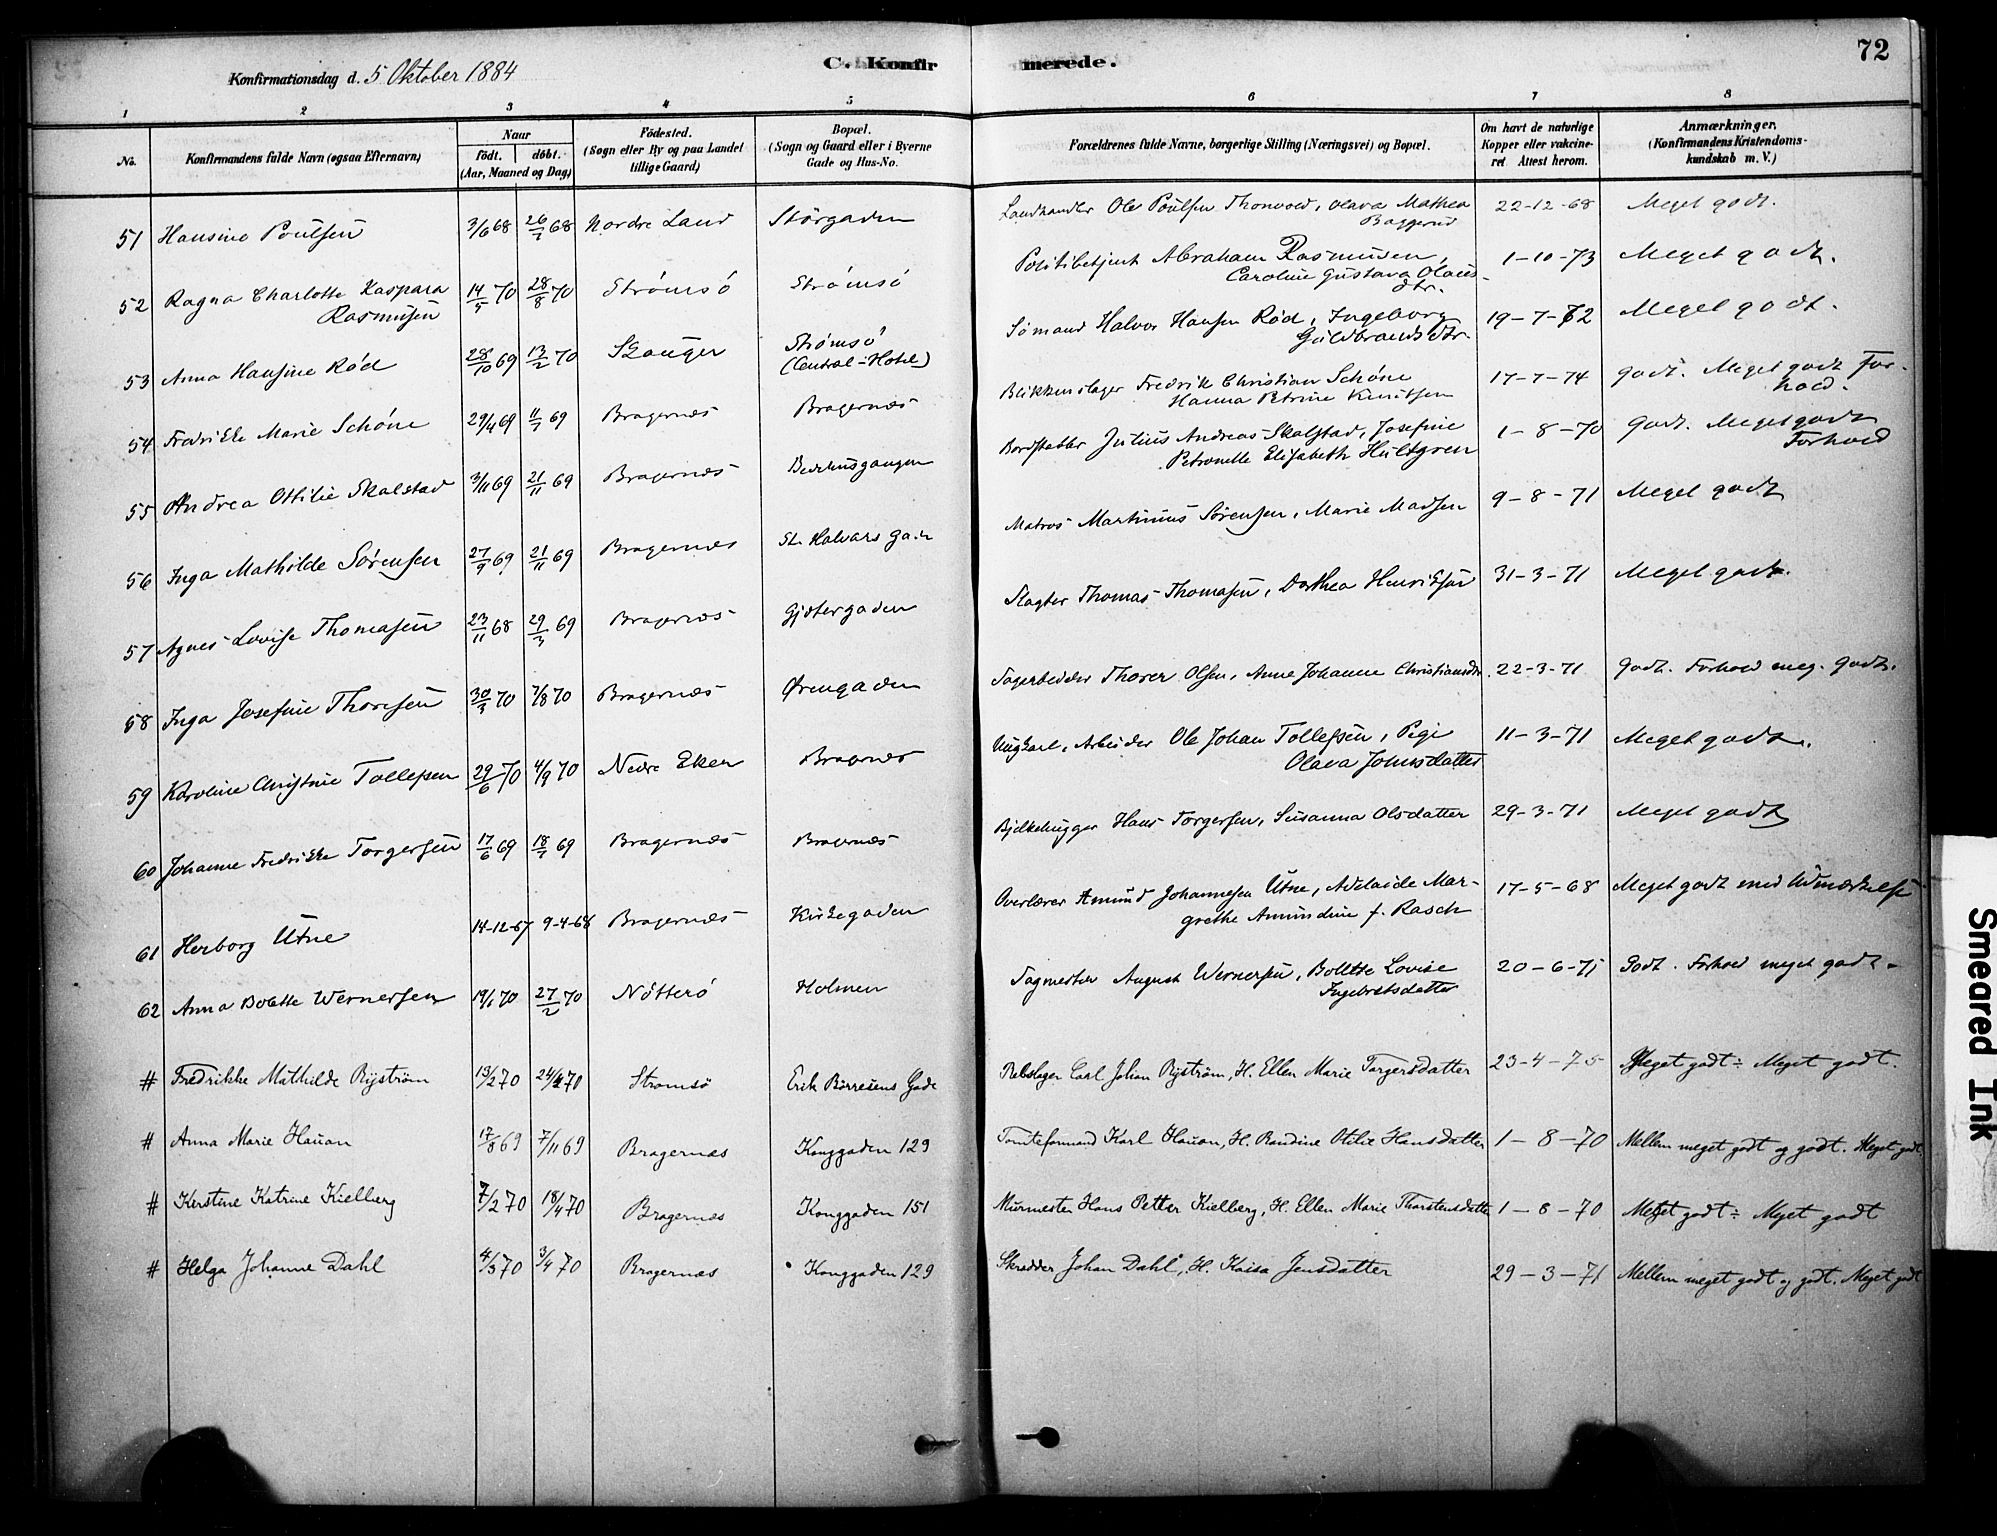 72
Konfirmationsdag d. 5 Oktober 1884
C. Konfirmerede.
1 2 3 4 5 6 7 8
No.
Konfirmandens fulde Navn (ogsaa Efternavn)
Naar
født. døbt.
(Aar, Maaned og Dag)
Fødested.
(Sogn eller By og paa Landet
tillige Gaard)
Bopæl.
(Sogn og Gaard eller i Byerne
Gade og Hus-No.
Forældrenes fulde Navne, borgerlige Stilling (Næringsvei) og Bopæl.
Om havt de naturlige
Kopper eller vakcine-
ret Attest herom.
Anmærkninger.
(Konfirmandens Kristendoms-
kundskab m. V.)
51 Hansine Poulsen 3/6 68 26/7 68 Nordre Land Storgaden Landhandler Ole Poulsen Thonvold, Olava Mathea 22-12-68 Meget godt.
Baggerud
52 Ragna Charlotte Kaspara 14/5 70 28/8 70 Strømsø Strømsø Politibetjent Abraham Rasmusen, 1-10-73 Meget godt.
Rasmusen Caroline Gustava Olaus-
dtr.
53 Anna Hansine Rød 28/10 69 13/2 70 Skouger Strømsø Sømand Halvor Hansen Rød, Ingeborg 19-7-72 Meget godt.
(Central-Hotel) Guldbrandsdtr.
54 Fredrikke Marie Schøne 29/4 69 11/7 69 Bragernæs Bragernæs Blikkenslager Fredrik Christian Schøne 17-7-74 Godt. Meget godt For-
Hanna Petrine Knutsen hold.
55 Andrea Ottilie Skalstad 3/11 69 21/11 69 Bragernæs Bedehusgangen Bordstabler Julius Andreas Skalstad, Josefine 1-8-70 Godt. Meget godt
Petronelle Elisabeth Hultgren Forhold
56 Inga Mathilde Sørensen 27/9 69 21/11 69 Bragernæs St. Halvars gade Matros Martinius Sørensen, Marie Madsen 9-8-71 Meget godt
57 Agnes Lovise Thomasen 23/11 68 29/3 69 Bragernæs Gjetergaden Slagter Thomas Thomasen, Dorthea Henriksen 31-3-71 Meget godt.
58 Inga Josefine Thoresen 30/3 70 7/8 70 Bragernæs Ørengaden Sagarbeider Thorer Olsen, Anne Johanne Christiansdtr. 22-3-71 Godt. Forhold meg. godt.
59 Karoline Christine Tollefsen 29/6 70 4/9 70 Nedre Eker Bragernæs Ungkarl, Arbeider Ole Johan Tollefsen, Pige 11-3-71 Meget godt.
Olava Johnsdatter
60 Johanne Fredrikke Torgersen 17/6 69 18/7 69 Bragernæs Bragernæs Bjelkehugger Hans Torgersen, Susanna Olsdatter 29-3-71 Meget godt
61 Herborg Utne 14-12-67 9-4-68 Bragernæs Kirkegaden Overlærer Amund Johannesen Utne, Adelaide Mar- 17-5-68 Meget godt med Udmærkelse
grethe Amundine f. Rasch
62 Anna Bolette Wernersen 19/1 70 27/2 70 Nøtterø Holmen Sagmester August Wernersen, Bolette Lovise 20-6-71 Godt. Forhold meget godt.
Ingebretsdatter
# Fredrikke Mathilde Ryström 13/2 70 24/4 70 Stromsø Erik Börresens Gade Rebslager Carl Johan Ryström, H. Ellen Marie Torgersdatter 23-4-75 Meget godt: Meget godt.
# Anna Marie Hauan 17/8 69 7/11 69 Bragernæs Konggaden 129 Tomteformand Karl Hauan, H. Randine Otilie Hansdatter 1-8-70 Mellem meget godt og godt. Meget godt.
# Kerstine Katrine Kielberg 7/2 70 18/4 70 Bragernæs Konggaden 151 Murmester Hans Petter Kielberg, H. Ellen Marie Thorstensdatter 1-8-70 Meget godt: Meget godt
# Helga Johanne Dahl 4/3 70 3/4 70 Bragernæs Konggaden 129 Skrædder Johan Dahl, H. Kaisa Jensdatter 29-3-71 Mellem meget godt og godt. Meget godt
Smeared Ink